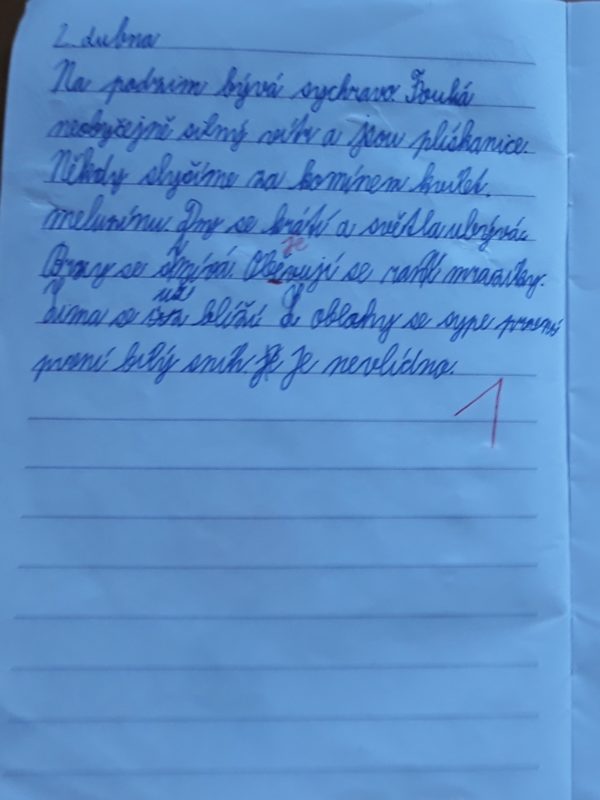 2. dubna
Na podzim bývá sychravo. Fouká
neobyčejně silný vítr a jsou plískanice.
Někdy slyšíme za komínem kvílet
meluzínu. Dny se krátí a světla ubývá.
Brzy se stmívá. Obenují se ranní mrazíky.
je
už
Zima se blíží Z oblohy se sype
první bílý sníh Je nevlídno.
1